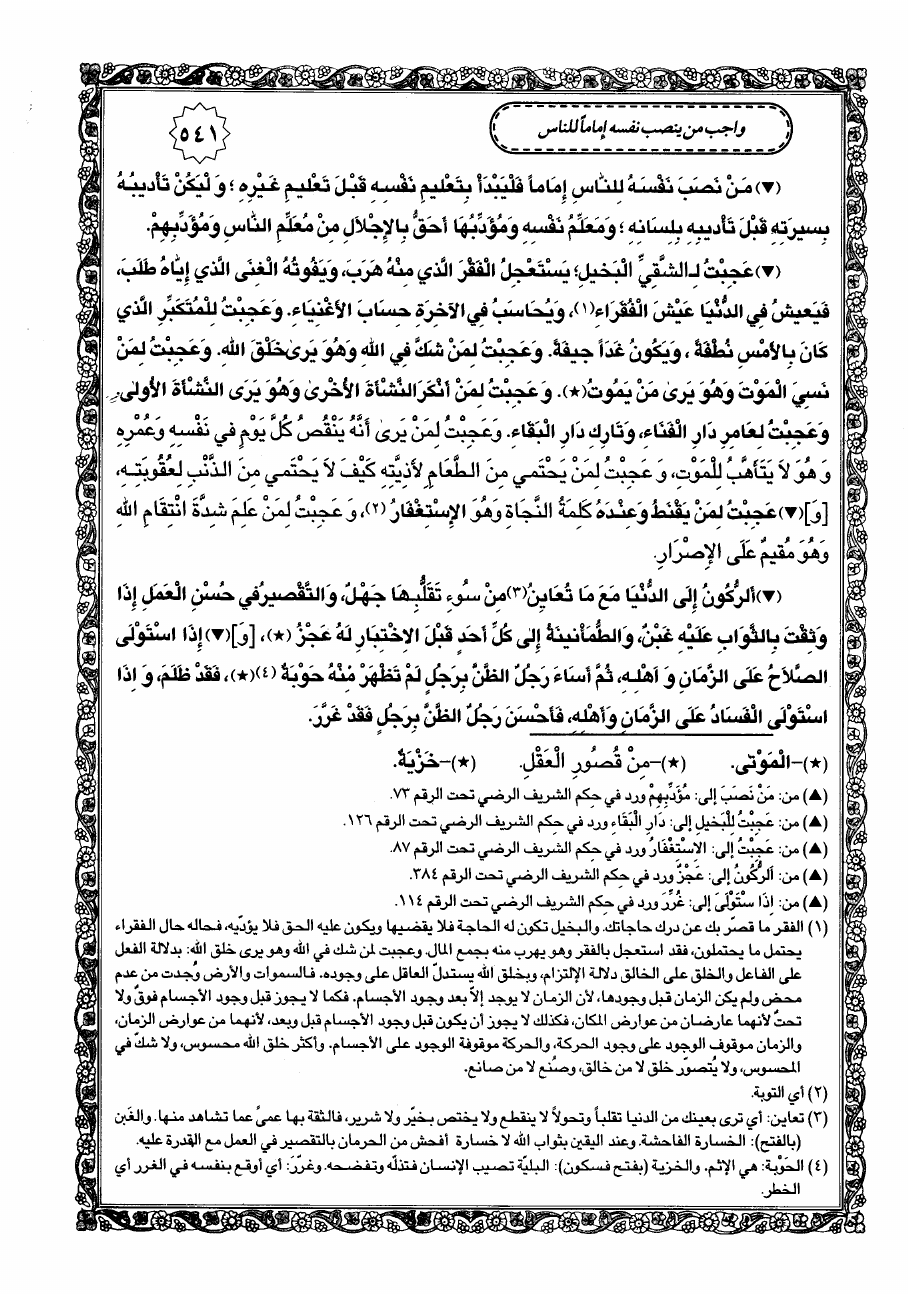 واجب من ينصب نفسه إماماً للناس
٥٤١
(▼) مَنْ نَصَبَ نَفْسَهُ لِلنَّاسِ إِمَاماً فَلْيَبْدَأْ بِتَعْليمِ نَفْسِهِ قَبْلَ تَعْليمِ غَيْرِهِ ؛ وَ لْيَكُنْ تَأْديبُهُ
بِسيرَتِهِ قَبْلَ تَأْديبِهِ بِلِسَانِهِ ؛ وَمَعَلِّمُ نَفْسِهِ وَمُؤَدِّبُهَا أَحَقُّ بِالإِجْلاَلِ مِنْ مُعَلِّمِ النَّاسِ وَمُؤَدِّبِهِمْ.
(▼) عَجِبْتُ لِـلشَّقِيِّ الْبَخيلِ؛ يَسْتَعْجِلُ الْفَقْرَ الَّذي مِنْهُ هَرَبَ، وَيَفُوتُهُ الْغِنَى الَّذي إِيَّاهُ طَلَبَ،
فَيَعيشُ فِي الدُّنْيَا عَيْشَ الْفُقَرَاءِ (١)، وَيُحَاسَبُ فِي الآخِرَةِ حِسَابَ الأَغْنِيَاءِ. وَعَجِبْتُ لِلْمُتَكَبِّرِ الَّذي
كَانَ بِالأَمْسِ نُطْفَةً ، وَيَكُونُ غَداً جيفَةً. وَعَجِبْتُ لِمَنْ شَكَّ فِي اللهِ وَهُوَ يَرىٰ خَلْقَ اللهِ. وَعَجِبْتُ لِمَنْ
نَسِيَ الْمَوْتَ وَهُوَ يَرىٰ مَنْ يَمُوتُ (★). وَ عَجِبْتُ لِمَنْ أَنْكَرَ النَّشْأَةَ الأُخْرىٰ وَهُوَ يَرَى النَّشْأَةَ الأُولىٰ.
وَ عَجِبْتُ لِعَامِرِ دَارِ الْفَنَاءِ، وَتَارِكِ دَارِ الْبَقَاءِ. وَعَجِبْتُ لِمَنْ يَرىٰ أَنَّهُ يَنْقُصُ كُلَّ يَوْمٍ في نَفْسِهِ وَعُمْرِهِ
وَ هُوَ لاَ يَتَأَهَّبُ لِلْمَوْتِ، وَ عَجِبْتُ لِمَنْ يَحْتَمي مِنَ الطَّعَامِ لأَذِيَّتِهِ كَيْفَ لاَ يَحْتَمي مِنَ الذَّنْبِ لِعُقُوبَتِهِ،
[وَ] (▼) عَجِبْتُ لِمَنْ يَقْنَطُ وَعِنْدَهُ كَلِمَةُ النَّجَاةِ وَهُوَ الإِسْتِغْفَارُ (٢)، وَ عَجِبْتُ لِمَنْ عَلِمَ شِدَّةَ انْتِقَامِ اللهِ
وَهُوَ مُقيمٌ عَلَى الإِصْرَارِ.
(▼) اَلرُّكُونُ إِلَى الدُّنْيَا مَعَ مَا تُعَايِنُ (٣) مِنْ سُوءِ تَقَلُّبِهَا جَهْلٌ، وَالتَّقْصيرُ في حُسْنِ الْعَمَلِ إِذَا
وَثِقْتَ بِالثَّوَابِ عَلَيْهِ غَبْنٌ، وَالطُّمَأْنينَةُ إِلى كُلِّ أَحَدٍ قَبْلَ الإِخْتِبَارِ لَهُ عَجْزٌ (★)، [وَ] (▼) إِذَا اسْتَوْلَى
الصَّلاَحُ عَلَى الزَّمَانِ وَ أَهْلِهِ، ثُمَّ أَسَاءَ رَجُلٌ الظَّنَّ بِرَجُلٍ لَمْ تَظْهَرْ مِنْهُ حَوْبَةٌ (٤)(★)، فَقَدْ ظَلَمَ، وَ إِذَا
اسْتَوْلَى الْفَسَادُ عَلَى الزَّمَانِ وَأَهْلِهِ، فَأَحْسَنَ رَجُلٌ الظَّنَّ بِرَجُلٍ فَقَدْ غَرَّرَ.
(★)-الْمَوْتى. (★)-مِنْ قُصُورِ الْعَقْلِ. (★)-خَزْيَةٌ.
(▲) من: مَنْ نَصَبَ إلى: مُؤَدِّبِهِمْ ورد في حكم الشريف الرضي تحت الرقم ٧٣.
(▲) من: عَجِبْتُ لِلْبَخيلِ إلى: دَارِ الْبَقَاءِ ورد في حكم الشريف الرضي تحت الرقم ١٢٦.
(▲) من: عَجِبْتُ إلى: الإِسْتِغْفَارُ ورد في حكم الشريف الرضي تحت الرقم ٨٧.
(▲) من: اَلرُّكُونُ إلى: عَجْزٌ ورد في حكم الشريف الرضي تحت الرقم ٣٨٤.
(▲) من: إِذَا سْتَوْلَى إلى: غُرِّرَ ورد في حكم الشريف الرضي تحت الرقم ١١٤.
(١) الفقر ما قصّر بك عن درك حاجاتك. والبخيل تكون له الحاجة فلا يقضيها ويكون عليه الحق فلا يؤدّيه، فحاله حال الفقراء
يحتمل ما يحتملون، فقد استعجل بالفقر وهو يهرب منه بجمع المال. وعجبت لمن شك في الله وهو يرى خلق الله: بدلالة الفعل
على الفاعل والخلق على الخالق دلالة الإلتزام، وبخلق الله يستدلّ العاقل على وجوده. فالسموات والأرض وُجدت من عدم
محض ولم يكن الزمان قبل وجودها، لأن الزمان لا يوجد إلاّ بعد وجود الأجسام. فكما لا يجوز قبل وجود الأجسام فوقٌ ولا
تحتٌ لأنهما عارضان من عوارض المكان، فكذلك لا يجوز أن يكون قبل وجود الأجسام قبل وبعد، لأنهما من عوارض الزمان،
والزمان موقوف الوجود على وجود الحركة، والحركة موقوفة الوجود على الأجسام. وأكثر خلق الله محسوس، ولا شكّ في
المحسوس، ولا يُتصور خلق لا من خالق، وصُنع لا من صانع.
(٢) أي التوبة.
(٣) تعاين: أي ترى بعينك من الدنيا تقلباً وتحولاً لا ينقطع ولا يختص بخيّر ولا شرير، فالثقة بها عمىً عما تشاهد منها. والغَبن
(بالفتح): الخسارة الفاحشة. وعند اليقين بثواب الله لا خسارة أفحش من الحرمان بالتقصير في العمل مع القدرة عليه.
(٤) الحَوْبة: هي الإثم. والخزية (بفتح فسكون): البليّة تصيب الإنسان فتذلّه وتفضحه. وغرّرَ: أي أوقع بنفسه في الغرر أي
الخطر.